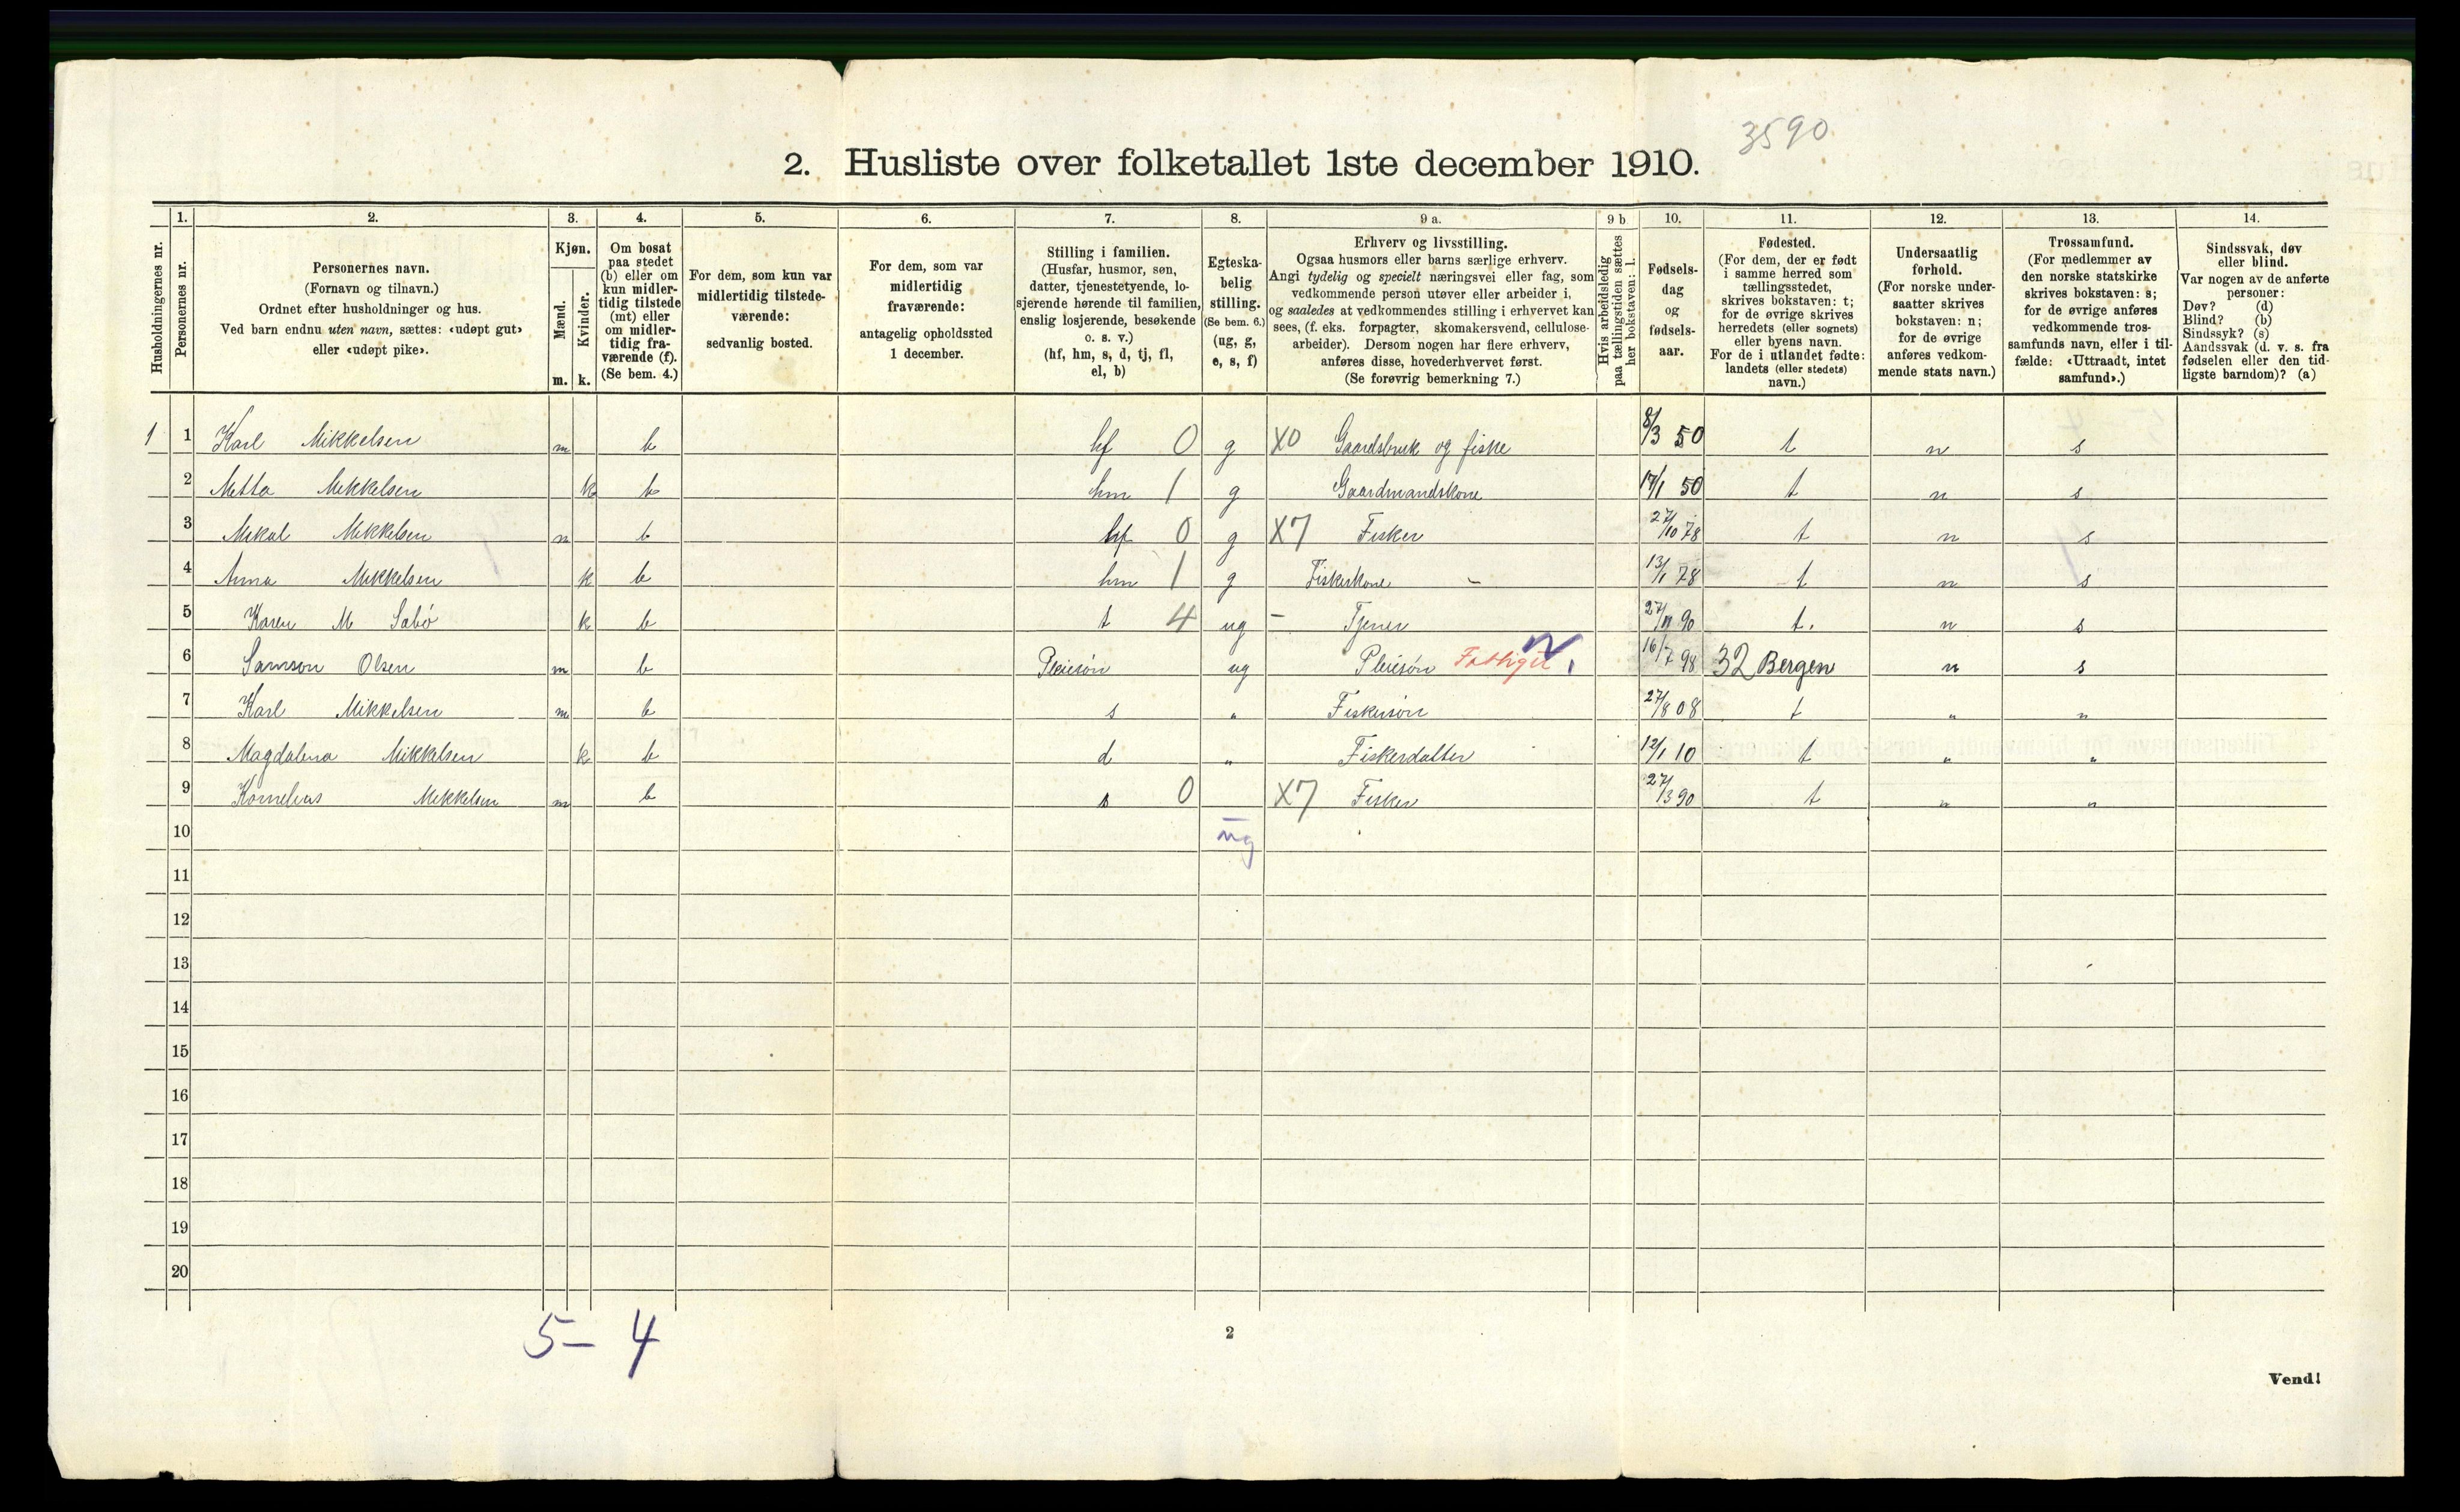 3590
2. Husliste over folketallet 1ste december 1910.
Husholdningernes nr.
1.
Personernes nr.
2.
Personernes navn.
(Fornavn og tilnavn.)
Ordnet efter husholdninger og hus.
Ved barn endnu uten navn, sættes: «udøpt gut»
eller «udøpt pike».
3.
Kjøn.
Mænd.
Kvinder.
m. k.
4.
Om bosat
paa stedet
(b) eller om
kun midler-
tidig tilstede
(mt) eller
om midler-
tidig fra-
værende (f).
(Se bem. 4.)
5.
For dem, som kun var
midlertidig tilstede-
værende:
sedvanlig bosted.
6.
For dem, som var
midlertidig
fraværende:
antagelig opholdssted
1 december.
7.
Stilling i familien.
(Husfar, husmor, søn,
datter, tjenestetyende, lo-
sjerende hørende til familien,
enslig losjerende, besøkende
o. s. v.)
(hf, hm, s, d, tj, fl,
el, b)
8.
Egteska-
belig
stilling.
(Se bem. 6.)
(ug, g,
e, s, f)
9 a.
Erhverv og livsstilling.
Ogsaa husmors eller barns særlige erhverv.
Angi tydelig og specielt næringsvei eller fag, som
vedkommende person utøver eller arbeider i,
og saaledes at vedkommendes stilling i erhvervet kan
sees, (f. eks. forpagter, skomakersvend, cellulose-
arbeider). Dersom nogen har flere erhverv,
anføres disse, hovederhvervet først.
(Se forøvrig bemerkning 7.)
9 b
Hvis arbeidsledig
paa tællingstiden sættes
her bokstaven: l.
10.
Fødsels-
dag
og
fødsels-
aar.
11.
Fødested.
(For dem, der er født
i samme herred som
tællingsstedet,
skrives bokstaven: t;
for de øvrige skrives
herredets (eller sognets)
eller byens navn.
For de i utlandet fødte:
landets (eller stedets)
navn.)
12.
Undersaatlig
forhold.
(For norske under-
saatter skrives
bokstaven: n;
for de øvrige
anføres vedkom-
mende stats navn.)
13.
Trossamfund.
(For medlemmer av
den norske statskirke
skrives bokstaven: s;
for de øvrige anføres
vedkommende tros-
samfunds navn, eller i til-
fælde: «Uttraadt, intet
samfund».)
14.
Sindssvak, døv
eller blind.
Var nogen av de anførte
personer:
Døv? (d)
Blind? (b)
Sindssyk? (s)
Aandssvak (d. v. s. fra
fødselen eller den tid-
ligste barndom)? (a)
1 1 Karl Mikkelsen m b hf 0 g X0 Gaardsbruk og fiske 8/3 50 t n s
2 Metta Mikkelsen k b hm 1 g Gaardmandskone 17/1 50 t n s
3 Mikal Mikkelsen m b hf 0 g X7 Fisker 27/10 78 t n s
4 Anna Mikkelsen k b hm 1 g Fiskerkone - 13/1 78 t n s
5 Karen M Sabö k b t 4 ug - Tjener 27/11 90 t. n s
6 Samson Olsen m b Pleiesön ug Pleiesön 16/7 98 32 Bergen n s
7 Karl Mikkelsen m b s " Fiskersön 27/8 08 t " "
8 Magdalena Mikkelsen k b d " Fiskerdatter 12/1 10 t " "
9 Kornelius Mikkelsen m b s 0 X7 Fisker 27/3 90 t " "
10 ug
11
12
13
14
15
16
17
18
19
20
5 - 4
2
Vend!